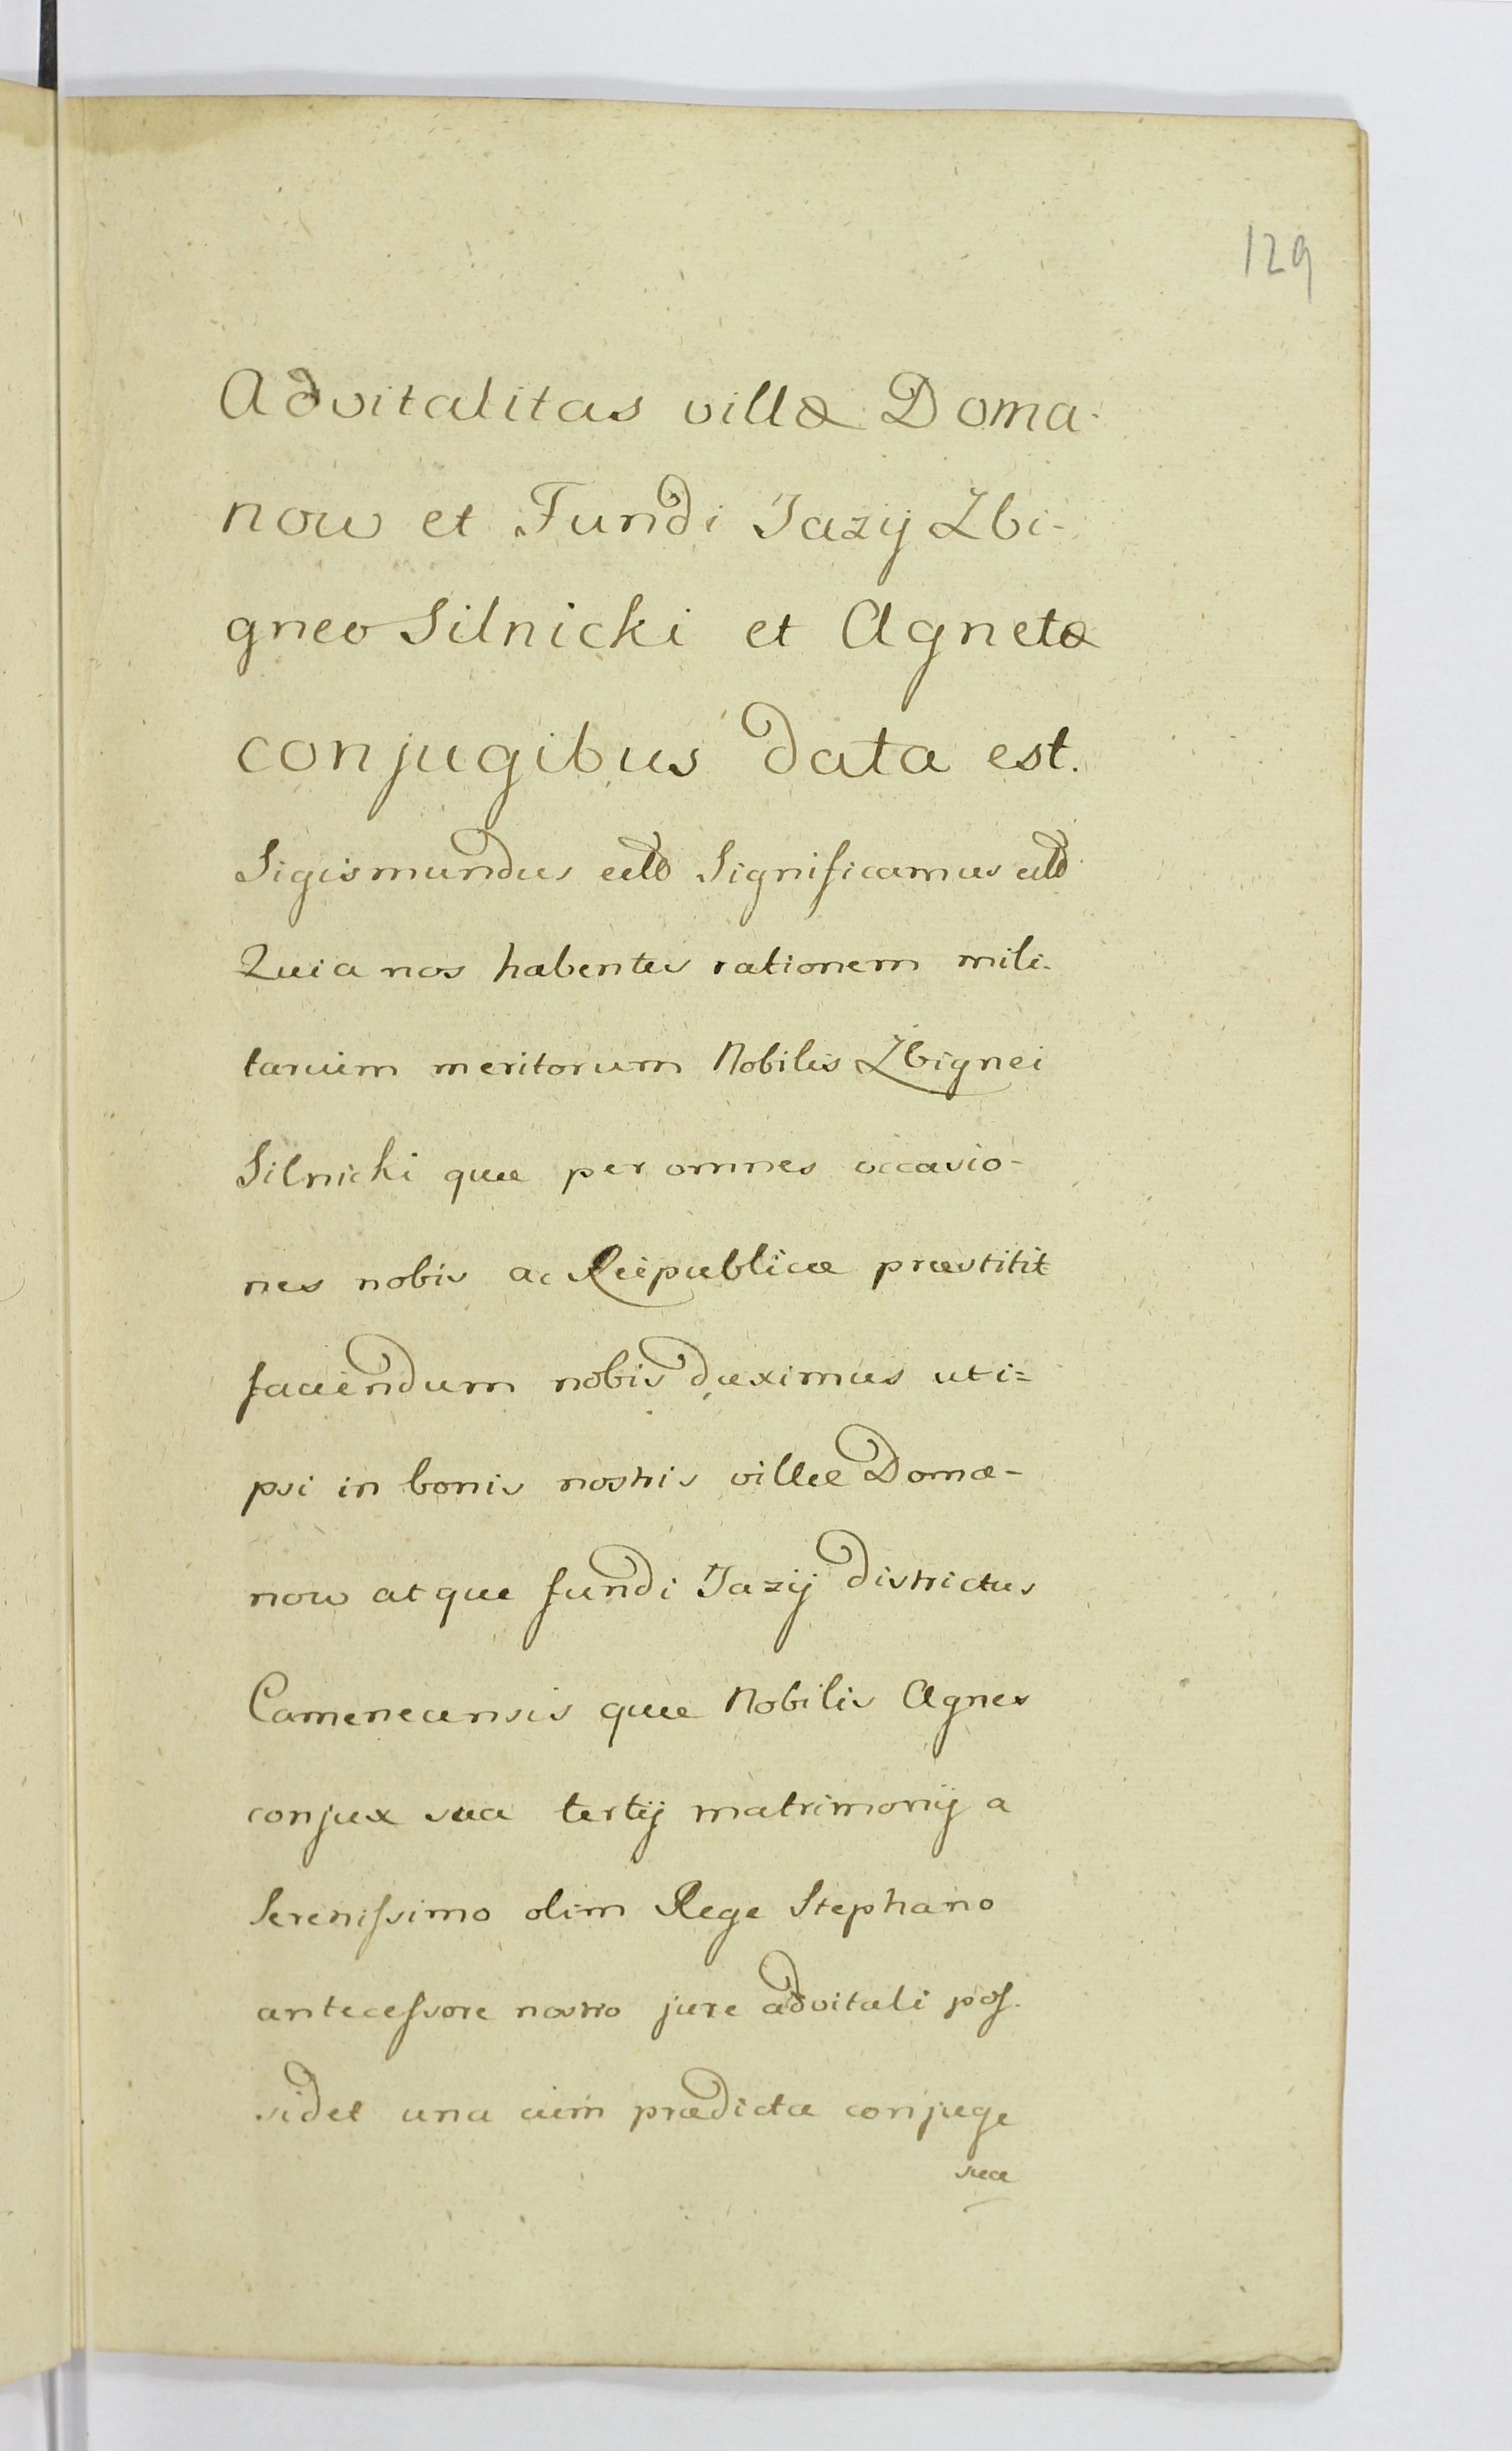 129
Advitalitas villæ Doma-
now et Fundi Jazij Zbi-
gneo Silnicki et Agnetæ
conjugibus data est.
Sigismundus Significamus
Quia nos habentes rationem mili-
tarium meritorum Nobilis Zbignei
Silnicki quæ per omnes occasio-
nes nobis ac Reipublicæ præstitit
faciendum nobis duximus uti=
psi in bonis nostris villæ Doma-
now atque fundi Jazij districtus
Camenecensis quæ Nobilis Agnes
conjux sua tertij matrimonij a
Serenissimo olim Rege Stephano
antecessore nostro jure advitali pos-
sidet una cum prædicta conjuge
sua